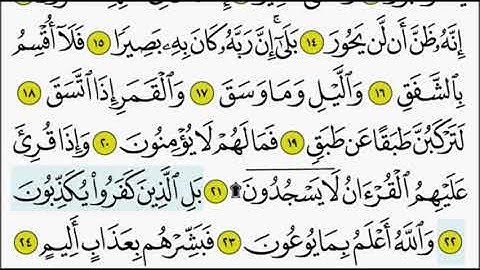 إِنَّهُۥ ظَنَّ أَن لَّن يَحُورَ ١٤ بَلَىٰٓ إِنَّ رَبَّهُۥ كَانَ بِهِۦ بَصِيرًا ١٥ فَلَآ أُقْسِمُ
بِٱلشَّفَقِ ١٦ وَٱلَّيْلِ وَمَا وَسَقَ ١٧ وَٱلْقَمَرِ إِذَا ٱتَّسَقَ ١٨
لَتَرْكَبُنَّ طَبَقًا عَن طَبَقٍ ١٩ فَمَا لَهُمْ لَا يُؤْمِنُونَ ٢٠ وَإِذَا قُرِئَ
عَلَيْهِمُ ٱلْقُرْءَانُ لَا يَسْجُدُونَ ۩ ٢١ بَلِ ٱلَّذِينَ كَفَرُوا۟ يُكَذِّبُونَ
٢٢ وَٱللَّهُ أَعْلَمُ بِمَا يُوعُونَ ٢٣ فَبَشِّرْهُم بِعَذَابٍ أَلِيمٍ ٢٤